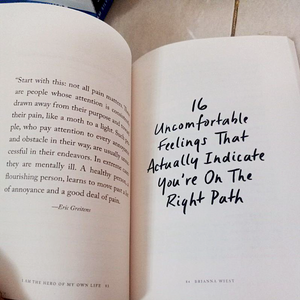 "Start with this: not all pain matters.
are people whose attention is
drawn away from their purpose and
their pain, like a moth to a light. Such
ple, who pay attention to every annoyance
and obstacle in their way, are usually
cessful in their endeavors. In extreme
they are mentally ill. A healthy person, a
flourishing person, learns to move past
of annoyance and a good deal of pain.
—Eric Greitens
THE HERO OF MY OWN LIFE
16
Uncomfortable
Feelings That
Actually Indicate
You're On The
Right Path
BRIANNA WIEST